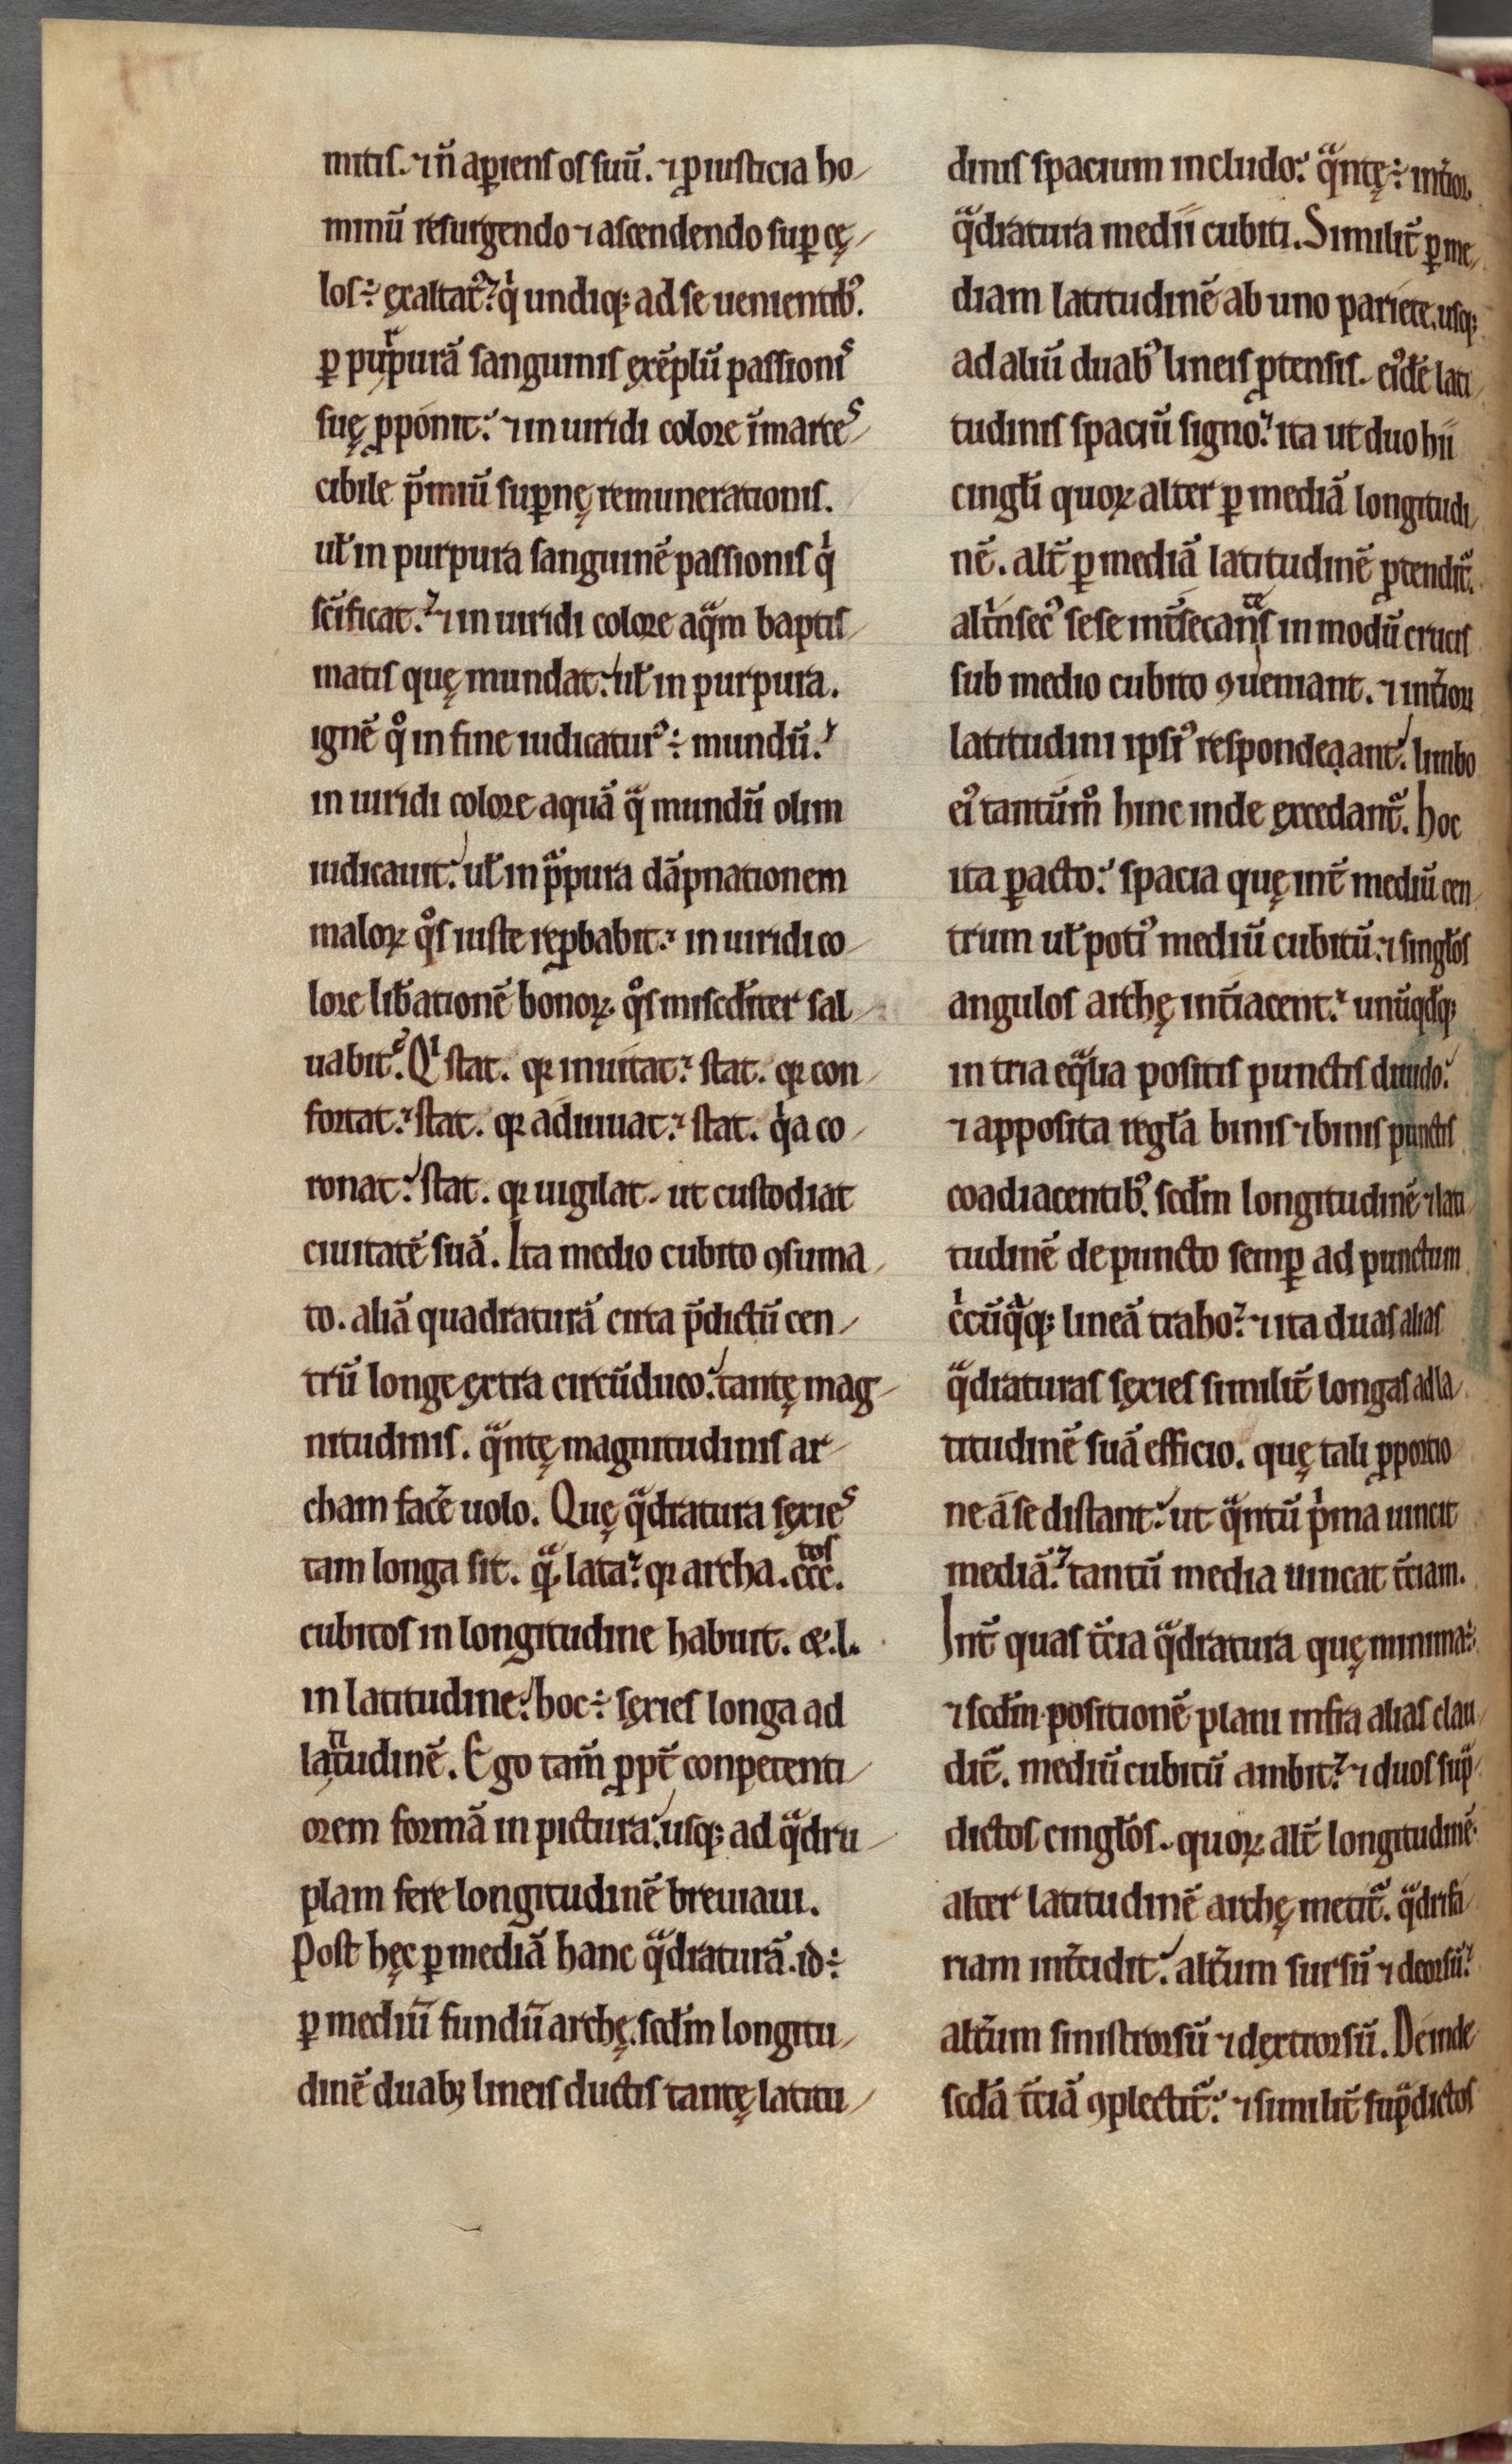 mitis. ⁊ ñ aꝑiens os suū. ⁊ ꝓ iusticia ho
minū resurgendo ⁊ ascendendo suꝑ cę
los ÷ ęxaltatꝰ. qͥ undiqꝫ ad se uenientibꝰ.
ꝑ purpurā sanguinis ęxēplū passionis
suę ꝓponit. ⁊ in uiridi colore īmarces
cibile p̄miū suꝑnę remunerationis.
uł in purpura sanguinē passionis qͥ
sc̄ificat. ⁊ in uiridi colore aqͣm baptis
matis quę mundat. uł in purpura.
ignē qͦ in fine iudicaturꝰ ÷ mundū.
in uiridi colore aquā qͣ mundū olim
iudicauit. uł in pͣpura dāpnationem
maloꝝ qͦs iuste reꝓbabit. in uiridi co
lore lib̄ationē bonoꝝ. qͦs misc̄diter sal
uabit. Qͥ stat. qꝛ inuitat. stat. qꝛ con
fortat. stat. qꝛ adiuuat. stat. qͥa co
ronat. stat. qꝛ uigilat. ut custodiat
ciuitatē suā. Ita medio cubito ꝯsuma
to. aliā quadraturā circa p̄dictū cen
trū longe ęxtra circūduco. tantę mag
nitudinis. qͣntę magnitudinis ar
cham facē uolo. Quę qͣdratura sęxies
tam longa sit. qͣ lata. qꝛ archa. ccctos.
cubitos in longitudine habuit. & .l.
in latitudine. hoc ÷ sęxies longa ad
latitudinē. Ego tam̄ ꝓpt̄ conpetenti
orem formā in pictura. usqꝫ ad qͣdru
plam fere longitudinē breuiaui.
Post hęc ꝑ mediā hanc qͣdraturā. id ÷
ꝑ mediū fundū archę. scd̄m longitu
dinē duabꝫ lineis ductis tantę latitu
dinis spacium includo. qͣntę ÷ int̄ior
qͣdratura medii cubiti. Similit̄ ꝑ me
diam latitudinē ab uno pariete. usqꝫ
ad aliū duabꝰ lineis ꝓtensis. eiꝰdē lati
tudinis spaciū signo. ita ut duo hii
cingłi quoꝝ alter ꝑ mediā longitudi
nē. alt̄ ꝑ mediā latitudinē ꝓtendit̄.
alt̄nsecꝰ sese int̄secantes in modū crucis
sub medio cubito ꝯueniant. ⁊ int̄iori
latitudini ipsiꝰ respondeant. limbo
eiꝰ tantūmͦ hinc inde ęxcedant̄. hoc
ita ꝑacto. spacia quę int̄ mediū cen
trum uł potiꝰ mediū cubitū. ⁊ singłos
angulos archę int̄iacent. unūqd̄qꝫ
in tria eqͣlia positis punctis diuido.
⁊ apposita regła binis ⁊ binis punctis
coadiacentibꝰ. scd̄m longitudinē ⁊ lati
tudinē de puncto semꝑ ad punctum
cͥcūqͣqꝫ lineā traho. ⁊ ita duas alias
qͣdraturas sęxies similit̄ longas ad la
titudinē suā efficio. quę tali ꝓportio
ne a se distant. ut qͣntū pͥma uincit
mediā. tantū media uincat t̄ciam.
Int̄ quas t̄cia qͣdratura quę minima ÷
⁊ scd̄m positionē plani infra alias clau
dit̄. mediū cubitū ambit. ⁊ duos supͣ
dictos cingłos. quoꝝ alt̄ longitudinē.
alter latitudinē archę metit̄. qͣdrifa
riam int̄cidit. alt̄um sursū ⁊ deorsū.
alt̄um sinistrorsū ⁊ dęxtrorsū. Deinde
scd̄a t̄ciā ꝯplectit̄. ⁊ similit̄ supͣdictos